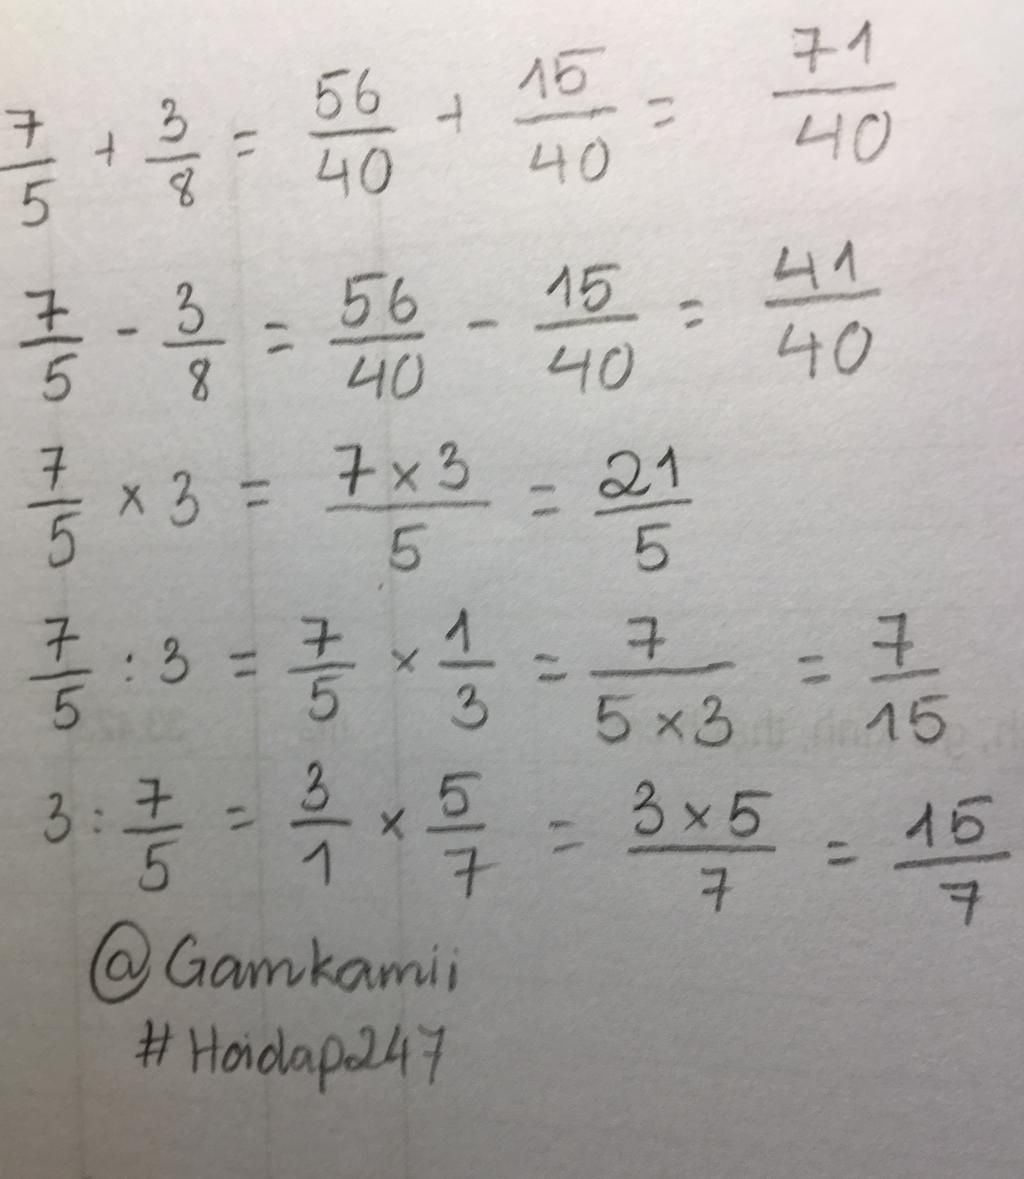 7/5 + 3/8 = 56/40 + 15/40 = 71/40
7/5 - 3/8 = 56/40 - 15/40 = 41/40
7/5 × 3 = 7 × 3/5 = 21/5
7/5 : 3 = 7/5 × 1/3 = 7/5 × 3 = 7/15
3 : 7/5 = 3/1 × 5/7 = 3 × 5/7 = 15/7
@Gamkamii
#Hoidap247